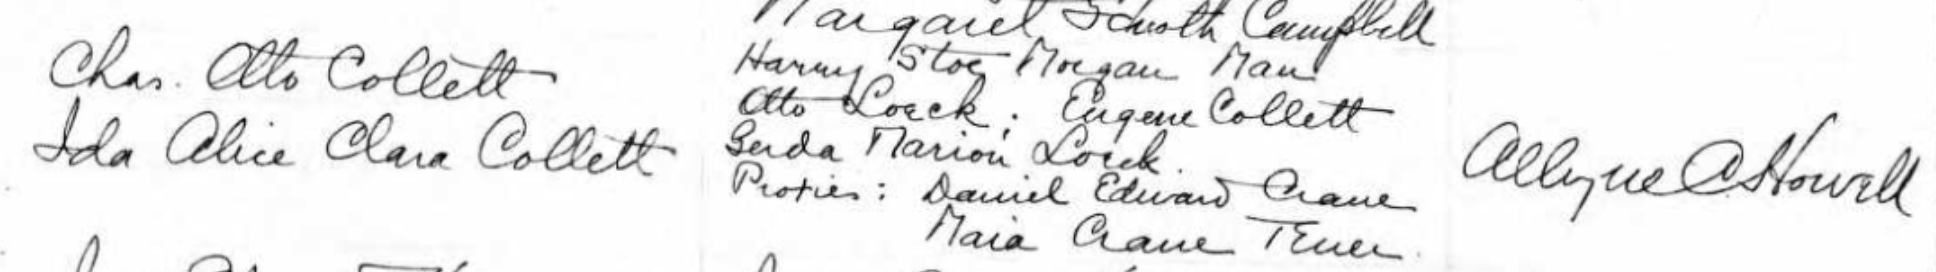 Margaret Campbell
Chas. Otto Collett
Harmy Stoe Morgan Man
Otto Loeck; Eugene Collett
Ida Alice Clara Collett
Gerda Marion Loeck.
Allyne C Howell
Proxies: Daniel Edward Crane
Maia Crane Tener.